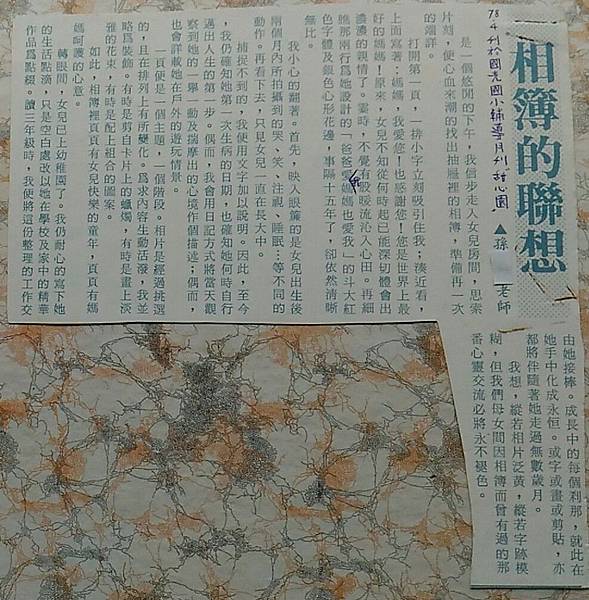 相簿的聯想
▲孫 老師
78.4刊於國光國小輔導月刊"甜心園"
是一個悠閒的下午，我信步走入女兒房間，思索
片刻，便心血來潮的找出抽屜裡的相簿，準備再一次
的端詳。
打開第一頁，一排小字立刻吸引住我；湊近看，
上面寫著：媽媽，我愛您！也感謝您！您是世界上最
好的媽媽！原來，女兒不知從何時起已能深切體會出
濃濃的親情了。霎時，不覺有股暖流沁入心田。再細
瞧那兩行爲她設計的「爸爸愛媽媽也愛我」的斗大紅
色字體及銀色心形花邊，事隔十五年了，卻依然清晰
無比。
我小心的翻著。首先，映入眼簾的是女兒出生後
兩個月內所拍攝到的哭、笑、注視、睡眠…等不同的
動作。再看下去，只見女兒一直在長大中。
捕捉不到的，我便用文字加以說明。因此，至今
我仍確知她第一次生病的日期，也確知她何時自行
邁出人生的第一步。偶而，我會用日記方式將當天觀
察到她的一舉一動及揣摩她的心境作個描述；偶而，
也會詳載她在戶外的遊玩情景。
一頁便是一個主題，一個階段。相片是經過挑選
的，且在排列上有所變化。爲求內容生動活潑，我並
略爲裝飾。有時是剪自卡片上的蠟燭，有時是畫上淡
雅的花束，有時是配上組合的圖案。
如此，相簿裡頁頁有女兒快樂的童年，頁頁有媽
媽呵護的心意。
轉眼間，女兒已上幼稚園了。我仍耐心的寫下她
的生活點滴，只是空白處改以她在學校及家中的精華
作品爲點綴。讀三年級時，我便將這份整理的工作交
由她接棒。成長中的每個刹那，就此在
她手中化成永恒。或字或畫或剪貼，亦
都將伴隨著她走過無數歲月。
我想，縱若相片泛黃，縱若字跡模
糊，但我們母女間因相簿而曾有過的那
番心靈交流必將永不褪色。